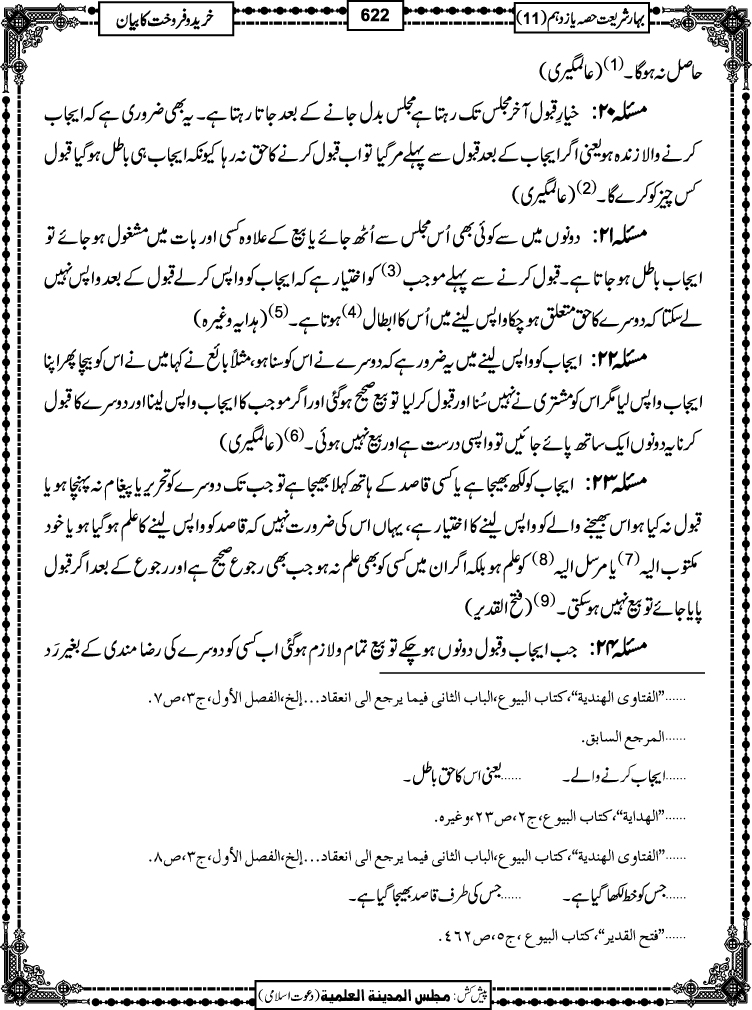 بہار شریعت حصہ یازدہم (11)
622
خرید و فروخت کا بیان
حاصل نہ ہوگا۔(1) (عالمگیری)
مسئلہ ۲۰: خیارِ قبول آخر مجلس تک رہتا ہے مجلس بدل جانے کے بعد جاتا رہتا ہے۔ یہ بھی ضروری ہے کہ ایجاب
کرنے والا زندہ ہو یعنی اگر ایجاب کے بعد قبول سے پہلے مر گیا تو اب قبول کرنے کا حق نہ رہا کیونکہ ایجاب ہی باطل ہوگیا قبول
کس چیز کو کرے گا۔(2) (عالمگیری)
مسئلہ ۲۱: دونوں میں سے کوئی بھی اُس مجلس سے اُٹھ جائے یا بیع کے علاوہ کسی اور بات میں مشغول ہو جائے تو
ایجاب باطل ہو جاتا ہے۔ قبول کرنے سے پہلے موجب (3) کو اختیار ہے کہ ایجاب کو واپس کرلے قبول کے بعد واپس نہیں
لے سکتا کہ دوسرے کا حق متعلق ہو چکا واپس لینے میں اُس کا ابطال (4) ہوتا ہے۔(5) (ہدایہ وغیرہ)
مسئلہ ۲۲: ایجاب کو واپس لینے میں یہ ضرور ہے کہ دوسرے نے اس کو سنا ہو، مثلاً بائع نے کہا میں نے اس کو بیچا پھر اپنا
ایجاب واپس لیا مگر اس کو مشتری نے نہیں سُنا اور قبول کرلیا تو بیع صحیح ہوگئی اور اگر موجب کا ایجاب واپس لینا اور دوسرے کا قبول
کرنا یہ دونوں ایک ساتھ پائے جائیں تو واپسی درست ہے اور بیع نہیں ہوئی۔(6) (عالمگیری)
مسئلہ ۲۳: ایجاب کو لکھ بھیجا ہے یا کسی قاصد کے ہاتھ کہلا بھیجا ہے تو جب تک دوسرے کو تحریر یا پیغام نہ پہنچا ہو یا
قبول نہ کیا ہو اس بھیجنے والے کو واپس لینے کا اختیار ہے، یہاں اس کی ضرورت نہیں کہ قاصد کو واپس لینے کا علم ہوگیا ہو یا خود
مکتوب الیہ (7) یا مرسل الیہ (8) کو علم ہو بلکہ اگر ان میں کسی کو بھی علم نہ ہو جب بھی رجوع صحیح ہے اور رجوع کے بعد اگر قبول
پایا جائے تو بیع نہیں ہوسکتی۔(9) (فتح القدیر)
مسئلہ ۲۴: جب ایجاب و قبول دونوں ہو چکے تو بیع تمام و لازم ہوگئی اب کسی کو دوسرے کی رضا مندی کے بغیر رَد
......”الفتاوی الهندية“، کتاب البیوع، الباب الثانی فیما یرجع الی انعقاد...إلخ، الفصل الأول، ج۳، ص۷.
......المرجع السابق.
......ایجاب کرنے والے۔ ......یعنی اس کا حق باطل۔
......”الهداية“، کتاب البیوع، ج۲، ص۲۳، وغیرہ.
......”الفتاوی الهندية“، کتاب البیوع، الباب الثانی فیما یرجع الی انعقاد...إلخ، الفصل الأول، ج۳، ص۸.
......جس کو خط لکھا گیا ہے۔ ......جس کی طرف قاصد بھیجا گیا ہے۔
......”فتح القدیر“، کتاب البیوع، ج٥، ص٤٦٢.
پیش کش: مجلس المدينة العلمية (دعوت اسلامی)